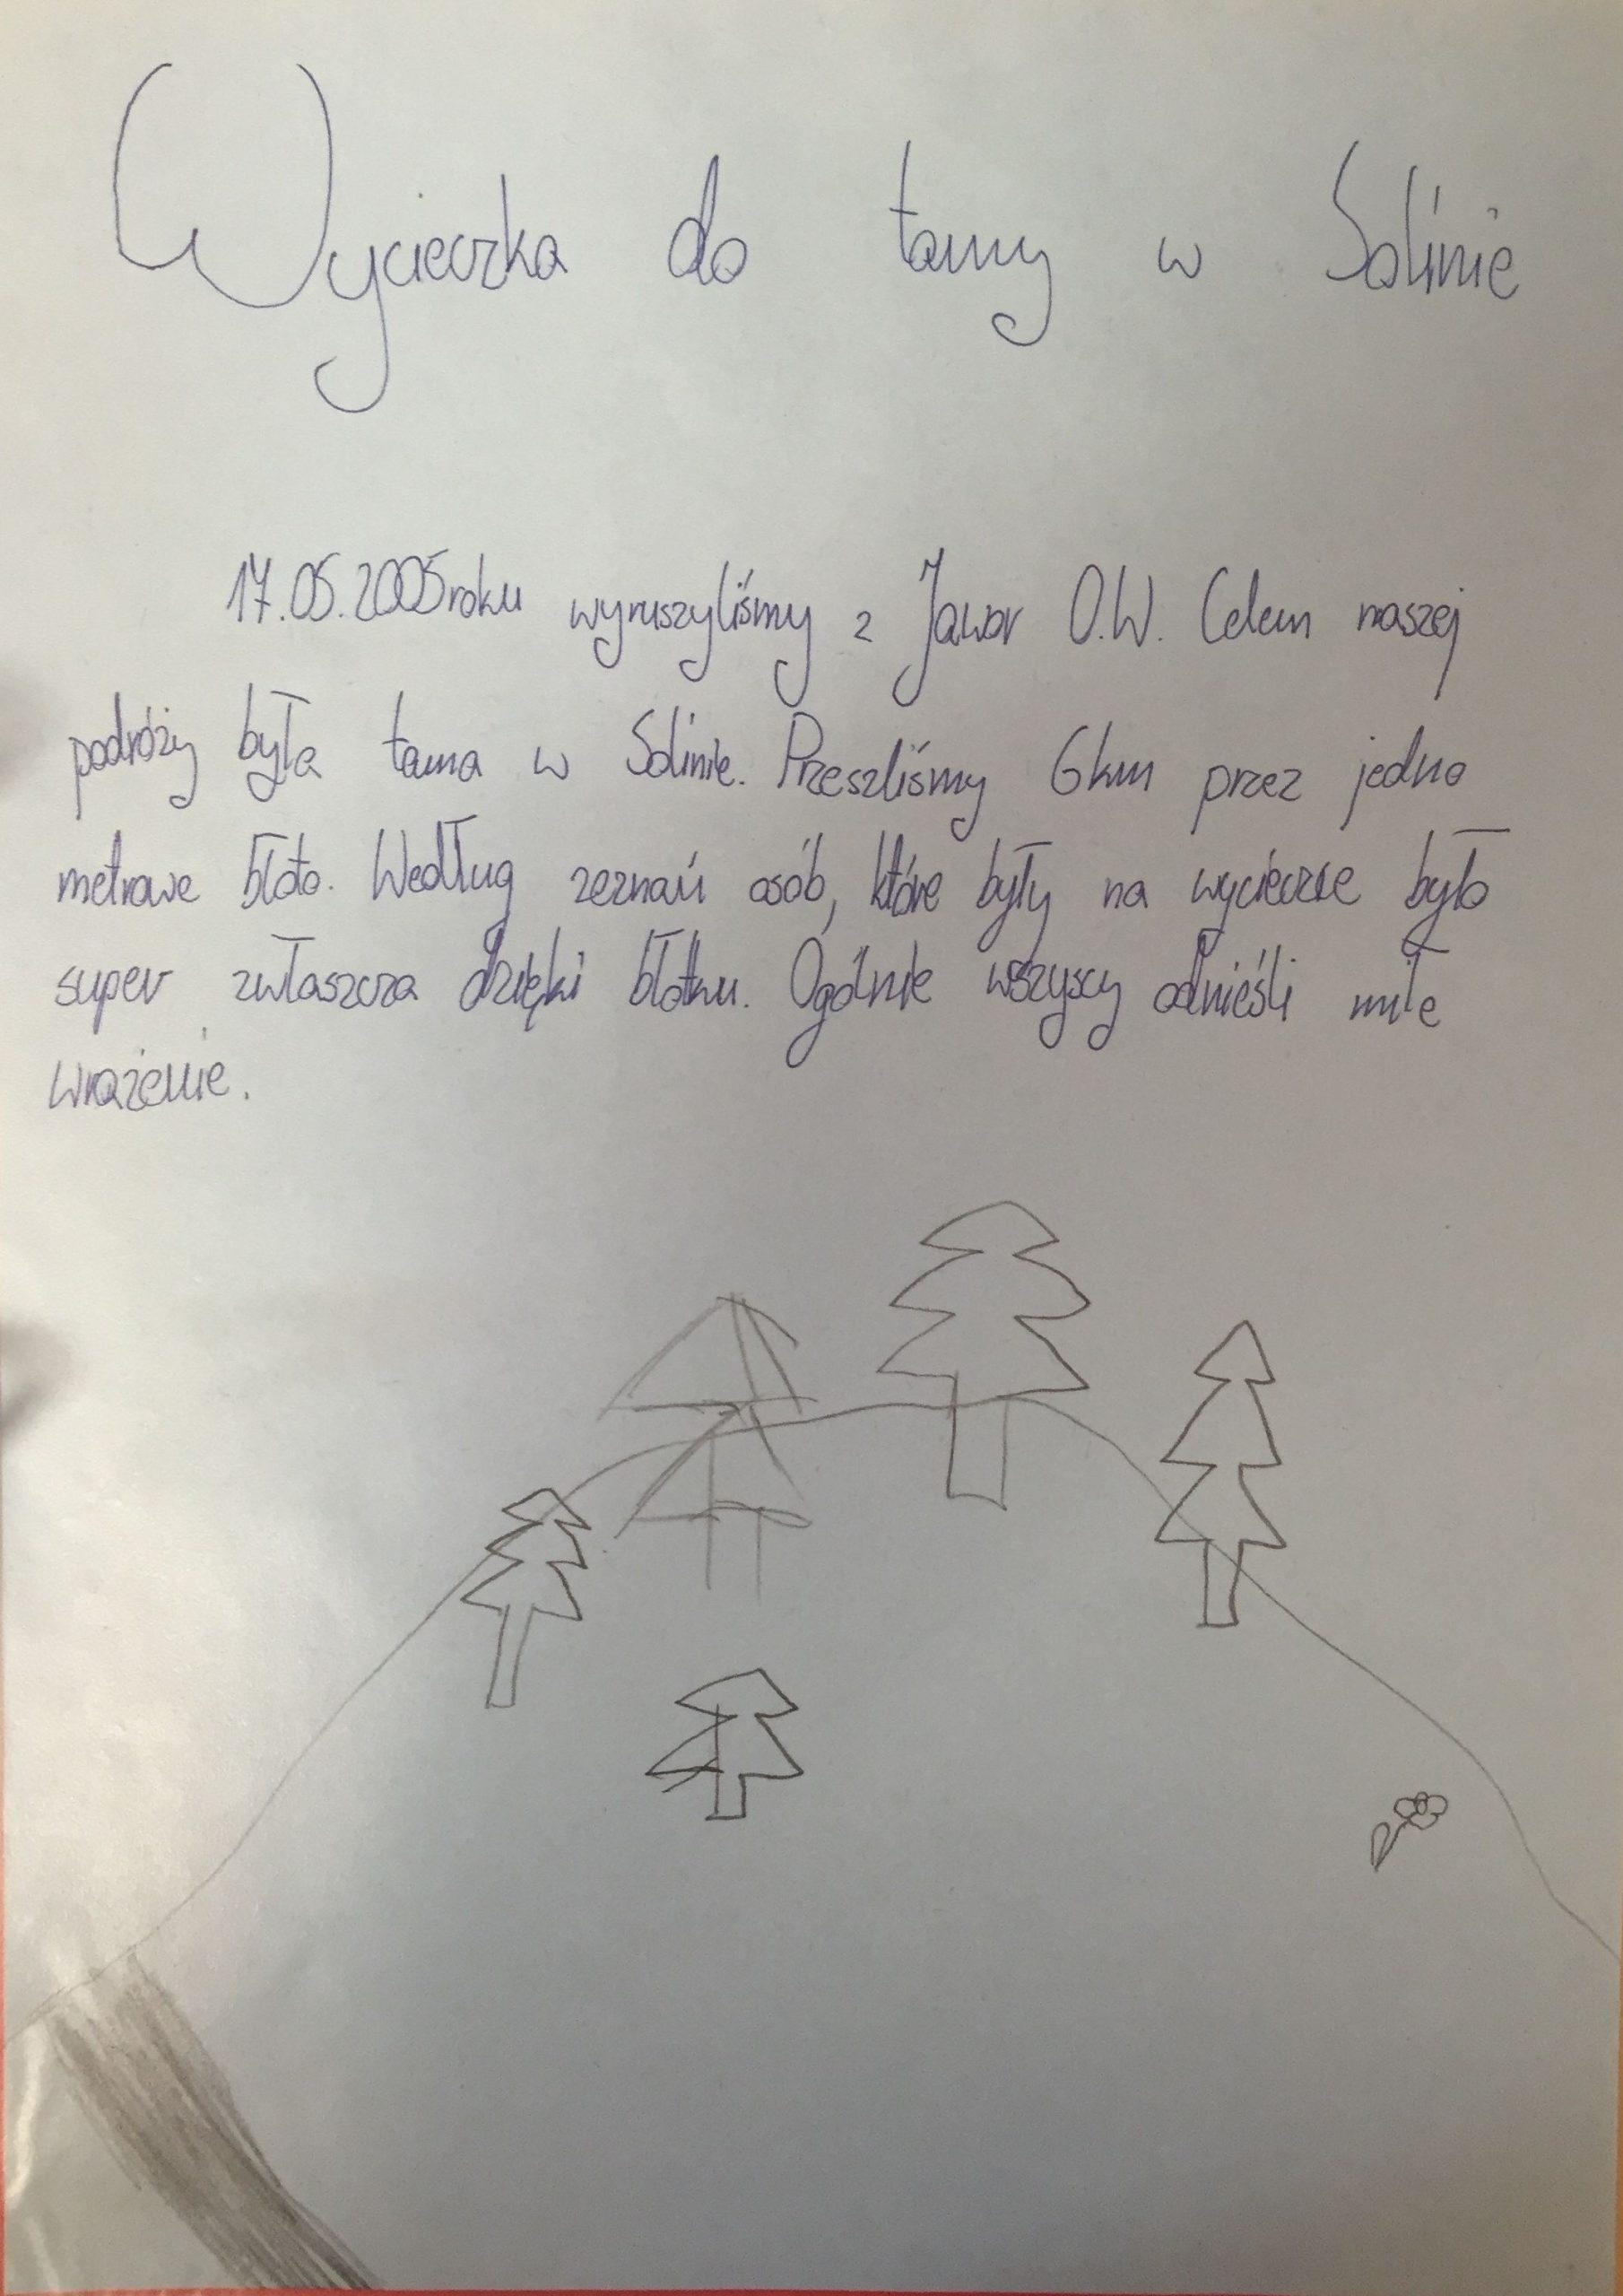 Wycieczka do tamy w Solinie
17.05.2005 roku wyruszyliśmy z Jawor O.W. Celem naszej
podróży była tama w Solinie. Przeszliśmy 6km przez jedno
metrowe błoto. Według zeznań osób, które były na wycieczce było
super zwłaszcza dzięki błotku. Ogólnie wszyscy odnieśli miłe
wrażenie.